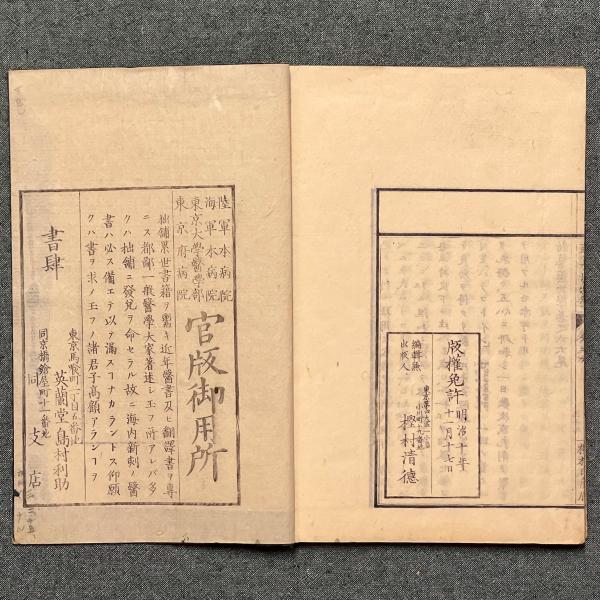 版權免許 明治十年
十一月十七日
編輯兼
出板人
樫村清德
陸軍本病院
海軍本病院
東京大學醫學部
東京府病院
官版御用所
拙鋪累世書籍ヲ鬻キ近年醫書及ヒ翻譯書ヲ專
ニス都鄙一般醫學大家著述シ玉フ所アレバ多
クハ拙鋪ニ發兌ヲ命セラル故ニ海内新刻ノ醫
書ハ必ス備エテ以テ滿スコナカラントス仰願
クハ書ヲ求メ玉フノ諸君子高顧アランコヲ
書肆
東京馬喰町二丁目五番地
英蘭堂 島村利助
同京橋鎗屋町十一番地
同支店